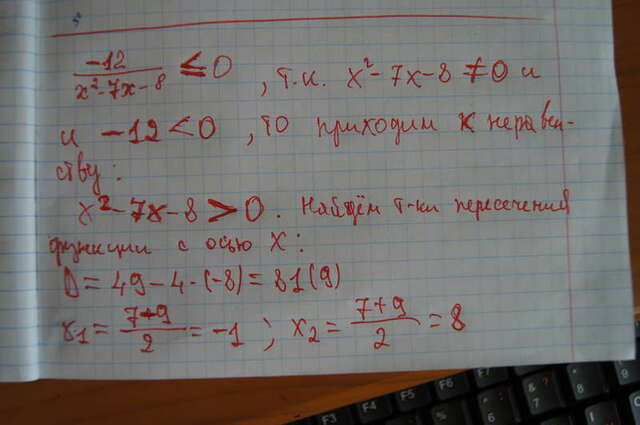 -12 / (x² - 7x - 8) ≤ 0 , т.к. x² - 7x - 8 ≠ 0 и
и -12 < 0 , то приходим к неравен-
ству:
x² - 7x - 8 > 0 . Найдём т-ки пересечения
функции с осью X :
D = 49 - 4 · (-8) = 81 (9)
x₁ = (7+9) / 2 = -1 ; x₂ = (7+9) / 2 = 8
F3 F4 F5 F6 F7